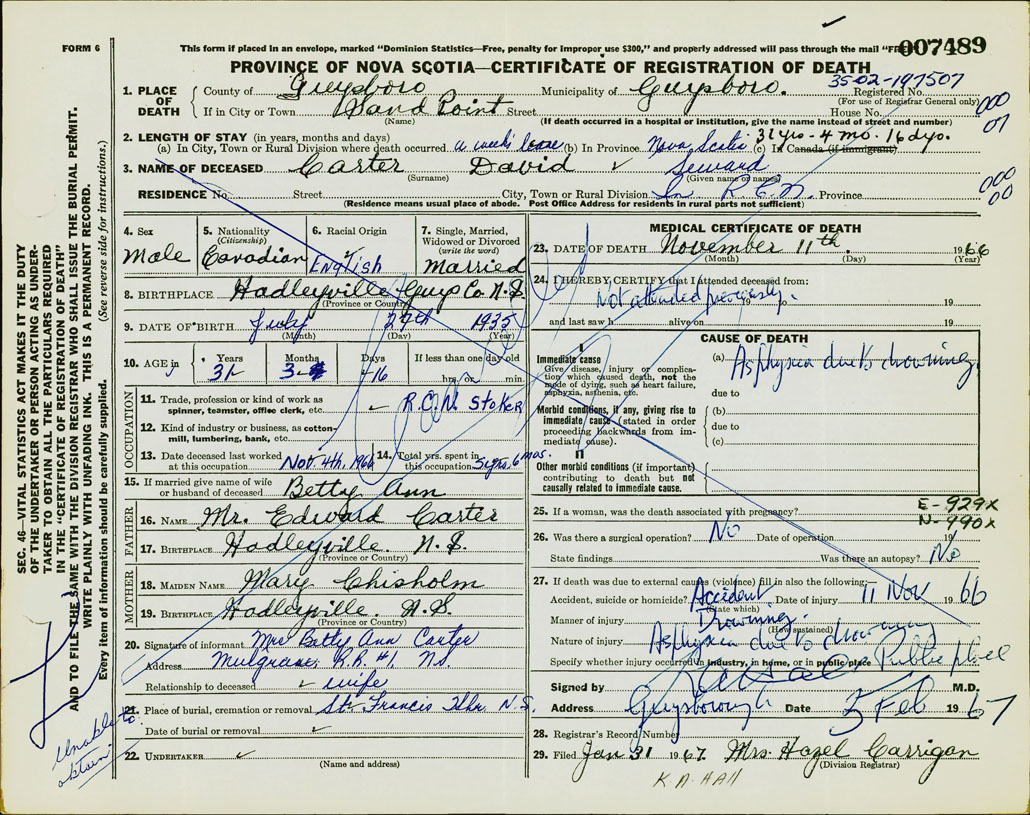 FORM 6
This form if placed in an envelope, marked "Dominion Statistics—Free, penalty for improper use $300," and properly addressed will pass through the mail "FREE
007489
PROVINCE OF NOVA SCOTIA—CERTIFICATE OF REGISTRATION OF DEATH
35-02-197507
1. PLACE OF DEATH
County of Guysboro Municipality of Guysboro. Registered No.
(For use of Registrar General only)
If in City or Town Sand Point Street House No.
(Name) (If death occurred in a hospital or institution, give the name instead of street and number)
000
07
2. LENGTH OF STAY (in years, months and days)
(a) In City, Town or Rural Division where death occurred a week's leave (b) In Province Nova Scotia (c) In Canada (if immigrant) 31 yrs - 4 mo. 16 dys.
3. NAME OF DECEASED Carter David Seward
(Surname) (Given name or names)
RESIDENCE No. Street City, Town or Rural Division In R.C.N. Province
(Residence means usual place of abode. Post Office Address for residents in rural parts not sufficient)
000
00
4. Sex
Male
5. Nationality
(Citizenship)
Canadian
6. Racial Origin
English
7. Single, Married, Widowed or Divorced
(write the word)
Married
8. BIRTHPLACE Hadleyville Guys Co. N.S.
(Province or Country)
9. DATE OF BIRTH July 27th 1935
(Month) (Day) (Year)
10. AGE in Years Months Days If less than one day old
31 3 16 hrs. or min.
OCCUPATION
11. Trade, profession or kind of work as spinner, teamster, office clerk, etc. R.C.N. Stoker
12. Kind of industry or business, as cotton-mill, lumbering, bank, etc.
13. Date deceased last worked at this occupation Nov. 4th, 1966
14. Total yrs. spent in this occupation 5 yrs. 6 mos.
15. If married give name of wife or husband of deceased Betty Ann
FATHER
16. NAME Mr. Edward Carter
17. BIRTHPLACE Hadleyville. N.S.
(Province or Country)
MOTHER
18. MAIDEN NAME Mary Chisholm
19. BIRTHPLACE Hadleyville. N.S.
(Province or Country)
20. Signature of informant Mrs Betty Ann Carter
Address Mulgrave, R.R.#1, N.S.
Relationship to deceased wife
21. Place of burial, cremation or removal St. Francis Hbr. N.S.
Date of burial or removal
22. UNDERTAKER
(Name and address)
Unable to obtain
MEDICAL CERTIFICATE OF DEATH
23. DATE OF DEATH November 11th. 1966
(Month) (Day) (Year)
24. I HEREBY CERTIFY that I attended deceased from:
Not attended previously. to 19
and last saw h alive on 19
CAUSE OF DEATH
I
Immediate cause
Give disease, injury or complication which caused death, not the mode of dying, such as heart failure, asphyxia, asthenia, etc.
(a) Asphyxia due to drowning.
due to
Morbid conditions, if any, giving rise to immediate cause (stated in order proceeding backwards from immediate cause).
(b)
due to
(c)
II
Other morbid conditions (if important) contributing to death but not causally related to immediate cause.
25. If a woman, was the death associated with pregnancy?
E-929x
N-990x
26. Was there a surgical operation? No Date of operation 19
State findings Was there an autopsy? No
27. If death was due to external causes (violence) fill in also the following:
Accident, suicide or homicide? Accident Date of injury 11 Nov 1966
(State which)
Manner of injury Drowning.
(How sustained)
Nature of injury Asphyxia due to drowning
Specify whether injury occurred in industry, in home, or in public place Public place
Signed by M.D.
Address Guysborough Date 5 Feb 1967
28. Registrar's Record Number
29. Filed Jan 31 1967. Mrs Hazel Carrigan
(Division Registrar)
K A HALL
SEC. 46—VITAL STATISTICS ACT MAKES IT THE DUTY OF THE UNDERTAKER OR PERSON ACTING AS UNDERTAKER TO OBTAIN ALL THE PARTICULARS REQUIRED IN THE "CERTIFICATE OF REGISTRATION OF DEATH" AND TO FILE THE SAME WITH THE DIVISION REGISTRAR WHO SHALL ISSUE THE BURIAL PERMIT.
WRITE PLAINLY WITH UNFADING INK. THIS IS A PERMANENT RECORD.
Every item of information should be carefully supplied. (See reverse side for instructions.)